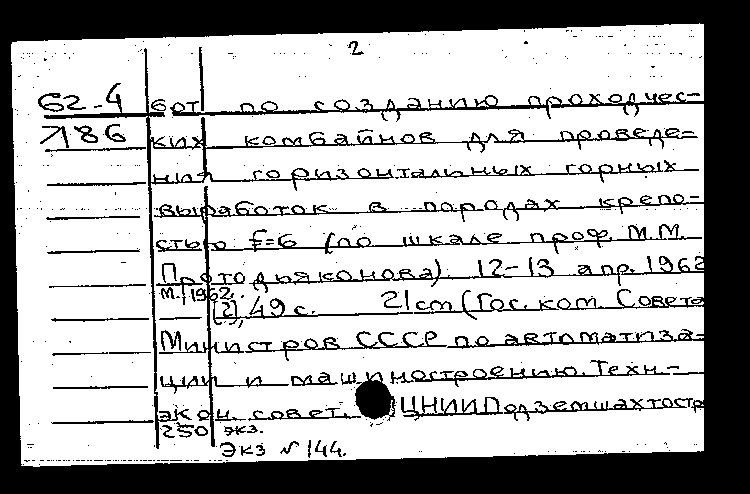 2
62-4 бот по созданию проходчес-
7186 ких комбайнов для проведе-
ния горизонтальных горных
выработок в породах крепо-
стью f=6 (по шкале проф. М.М.
Протодьяконова). 12-13 апр. 1962
М., 1962.
[2], 49 с. 21 cm (Гос. ком. Совета
Министров СССР по автоматиза-
ции и машиностроению. Техн.-
экон. совет. ЦНИИПодземшахтостр
250 экз.
Экз № 144.